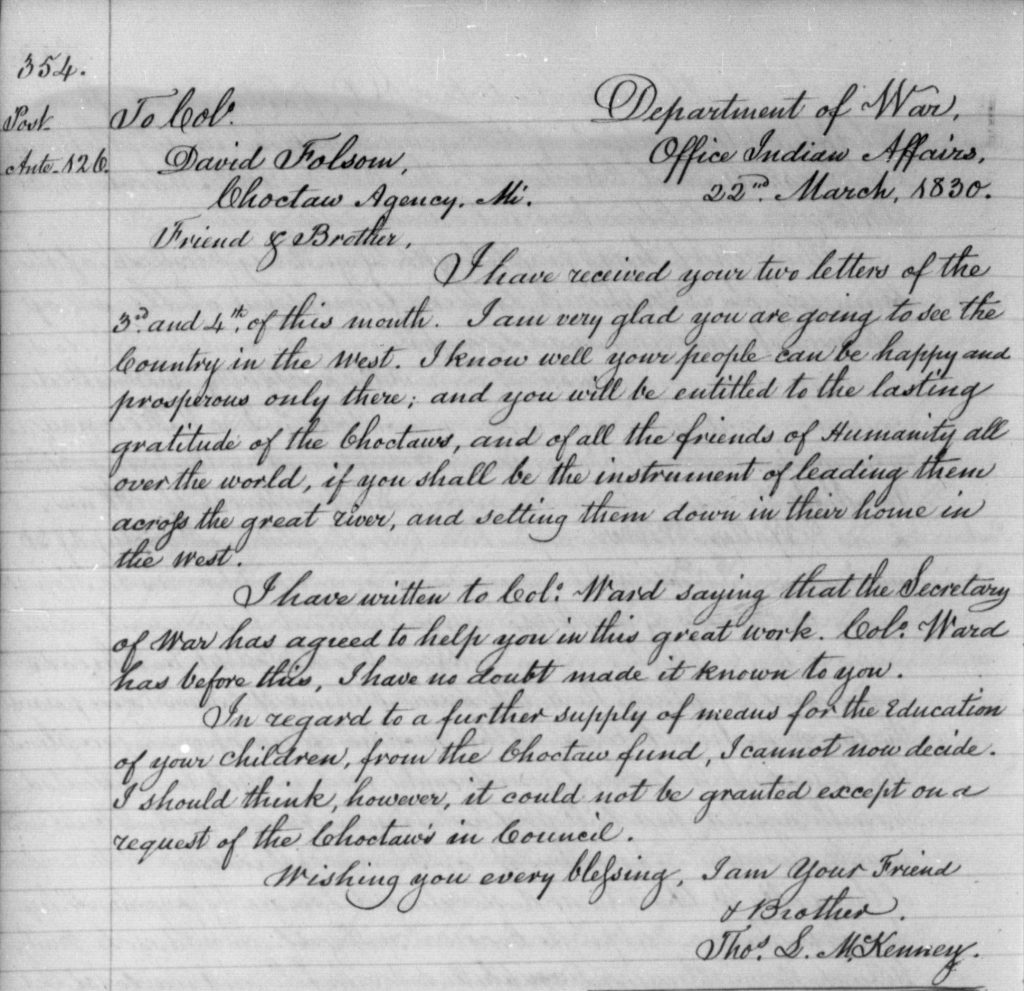 354.
Post
Ante. 126.
To Col.
David Folsom,
Choctaw Agency. Mi.
Department of War,
Office Indian Affairs,
22nd March, 1830.
Friend & Brother,
I have received your two letters of the
3rd and 4th of this month. I am very glad you are going to see the
Country in the west. I know well your people can be happy and
prosperous only there; and you will be entitled to the lasting
gratitude of the Choctaws, and of all the friends of Humanity all
over the world, if you shall be the instrument of leading them
across the great river, and setting them down in their home in
the west.
I have written to Col. Ward saying that the Secretary
of War has agreed to help you in this great work. Col. Ward
has before this, I have no doubt made it known to you.
In regard to a further supply of means for the Education
of your children, from the Choctaw fund, I cannot now decide.
I should think, however, it could not be granted except on a
request of the Choctaw's in Council.
Wishing you every blessing, I am Your Friend
& Brother.
Thos. L. McKenney.